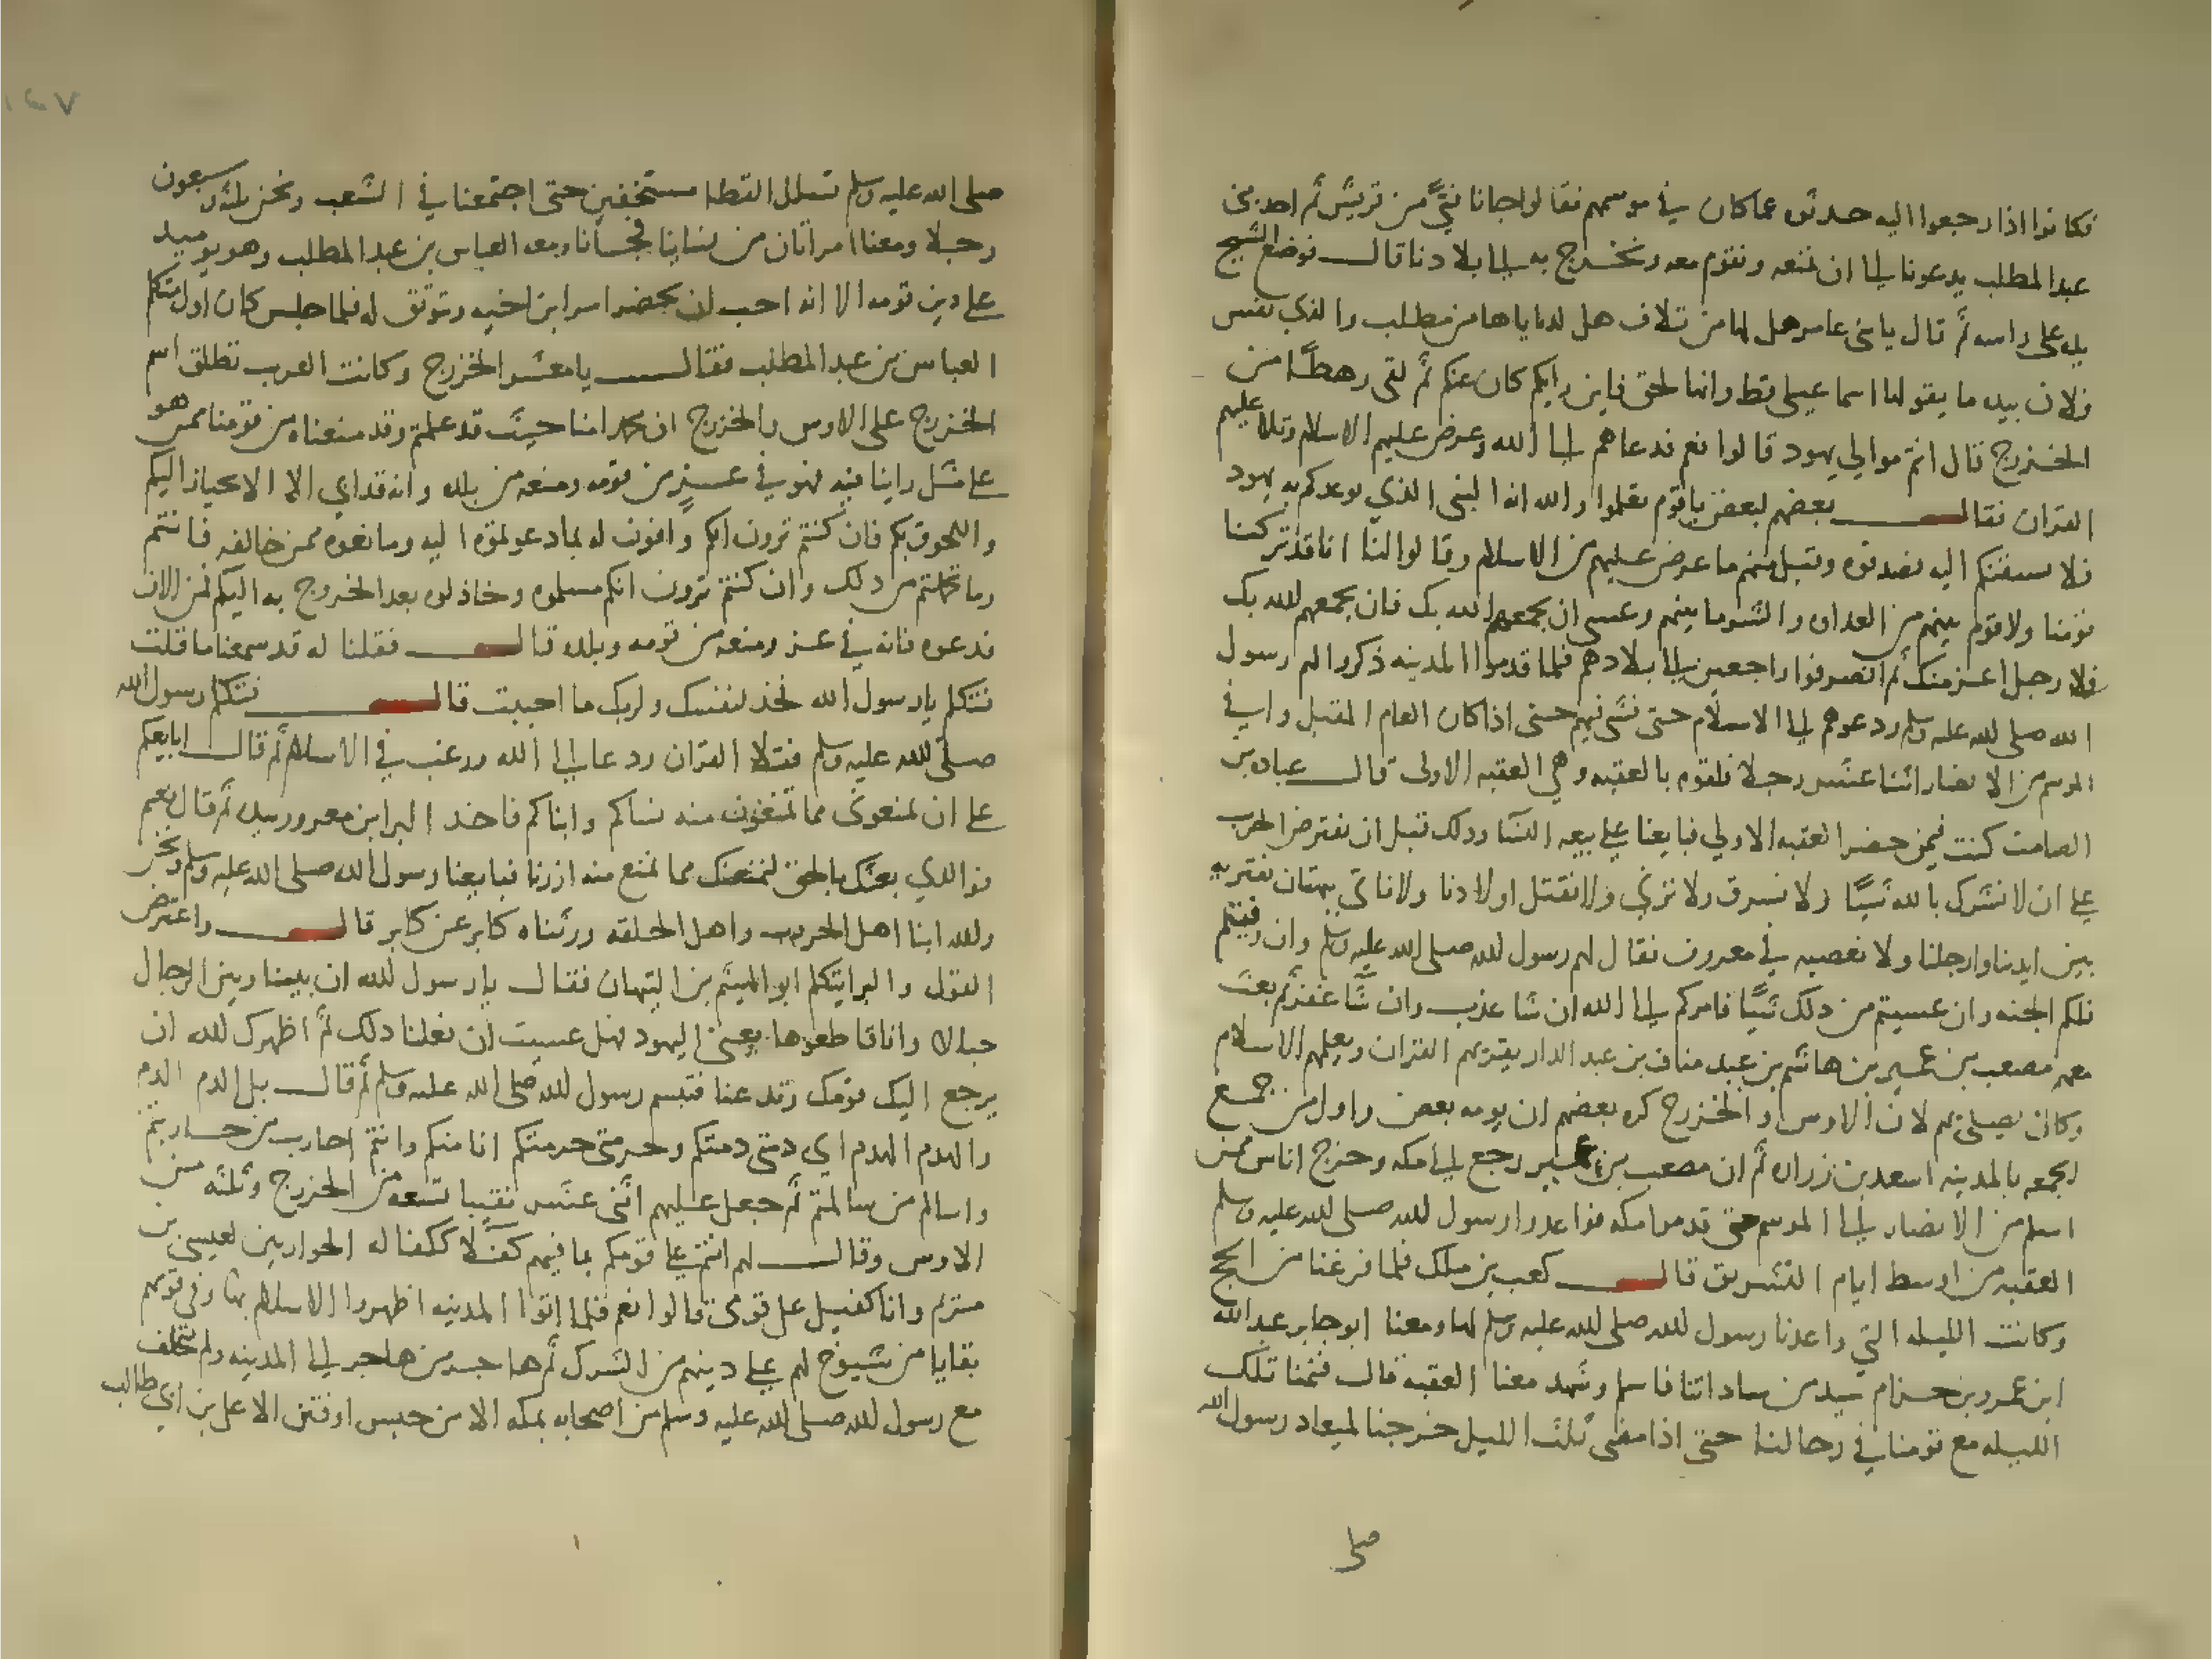 فكانوا اذا رجعوا اليه حدثوه عما كان في موسمهم فقالوا جانا فتي من قريش ثم احد بني
عبد المطلب يدعونا الي ان نمنعه ونقوم معه ونخرج به الي بلادنا قال فوضع الشيخ
يده علي راسه ثم قال يا بني عامر هل لها من تلاف هل لدناياها من مطلب والذي نفس
فلان بيده ما يقولها اسماعيلي قط وانها لحق فاين رايكم كان عنكم ثم لقي رهطا من
الخزرج قال انتم موالي يهود قالوا نعم فدعاهم الي الله وعرض عليهم الاسلام وتلا عليهم
القران فقال بعضهم لبعض يا قوم تعلموا والله انه النبي الذي توعدكم به يهود
فلا تسبقنكم اليه فصدقوه وقبل منهم ما عرض عليهم من الاسلام وقالوا لنا انا قد تركنا
قومنا ولا قوم بينهم من العداوه والشر ما بينهم وعسي ان يجمعهم الله بك فان يجمعهم الله بك
فلا رجل اعز منك ثم انصرفوا راجعين الي بلادهم فلما قدموا المدينه ذكروا لهم رسول
الله صلى الله عليه وسلم ودعوهم الي الاسلام حتي فشي فيهم حتي اذا كان العام المقبل وافي
الموسم من الانصار اثنا عشر رجلا فلقوه بالعقبه وهي العقبه الاولى قال عباده بن
الصامت كنت فيمن حضر العقبه الاولي فبايعنا علي بيعه النسا وذلك قبل ان تفترض الحرب
علي ان لا نشرك بالله شيئا ولا نسرق ولا نزني ولا نقتل اولادنا ولا ناتي ببهتان نفتريه
بين ايدينا وارجلنا ولا نعصيه في معروف فقال لهم رسول الله صلى الله عليه وسلم وان وفيتم
فلكم الجنه وان عسيتم من ذلك شيئا فامركم الي الله ان شا عذب وان شا غفر ثم بعث
معهم مصعب بن عمير بن هاشم بن عبد مناف بن عبد الدار يقريهم القران ويعلمهم الاسلام
وكان يصلي بهم لان الاوس والخزرج كره بعضهم ان يومه بعض واول من جمع
الجمعه بالمدينه اسعد بن زراره ثم ان مصعب بن عمير رجع الي مكه وخرج اناس ممن
اسلم من الانصار الي الموسم حتي قدموا مكه فواعدوا رسول الله صلى الله عليه وسلم
العقبه من اوسط ايام التشريق قال كعب بن ملك فلما فرغنا من الحج
وكانت الليله التي واعدنا رسول الله صلى الله عليه وسلم لها ومعنا ابو جابر عبد الله
ابن عمرو بن حزام سيد من ساداتنا فاسلم وشهد معنا العقبه قال فنمنا تلك
الليله مع قومنا في رحالنا حتى اذا مضي ثلث الليل خرجنا لميعاد رسول الله
صلى
صلى الله عليه وسلم تسلل القطا مستخفين حتى اجتمعنا في الشعب ونحن ثلثه وسبعون
رجلا ومعنا امراتان من نساينا فجانا ومعه العباس بن عبد المطلب وهو يوميد
علي دين قومه الا انه احب ان يحضر امر ابن اخيه وتوثق له فلما جلس كان اول متكلم
العباس بن عبد المطلب فقال يا معشر الخزرج وكانت العرب تطلق اسم
الخزرج على الاوس والخزرج ان محمدا منا حيث قد علمتم وقد منعناه من قومنا ممن هو
علي مثل راينا فيه فهو في عز من قومه ومنعه من بلده وانه قد ابي الا الانحياز اليكم
واللحوق بكم فان كنتم ترون انكم وافون له بما دعوتموه اليه ومانعوه ممن خالفه فانتم
وما تحملتم من ذلك وان كنتم ترون انكم مسلموه وخاذلوه بعد الخروج به اليكم فمن الان
فدعوه فانه في عز ومنعه من قومه وبلده قال فقلنا له قد سمعنا ما قلت
فتكلم يا رسول الله فخذ لنفسك ولربك ما احببت قال فتكلم رسول الله
صلى الله عليه وسلم فتلا القران ودعا الي الله ورغب في الاسلام ثم قال ابايعكم
علي ان تمنعوني مما تمنعون منه نساكم وابناكم فاخد البرا بن معرور بيده ثم قال نعم
فوالذي بعثك بالحق لنمنعنك مما نمنع منه ازرنا فبايعنا رسول الله صلى الله عليه وسلم ونحن
والله ابنا اهل الحرب واهل الحلقه ورثناه كابر عن كابر قال واعترض
القول والبرا يتكلم ابو الهيثم بن التيهان فقال يا رسول الله ان بيننا وبين الرجال
حبالا وانا قاطعوها يعني اليهود فهل عسيت ان فعلنا دلك ثم اظهرك الله ان
يرجع اليك قومك وتدعنا فتبسم رسول الله صلى الله عليه وسلم ثم قال بل الدم الدم
والهدم الهدم اي دمتي دمتكم وحرمتي حرمتكم انا منكم وانتم احارب من حاربتم
واسالم من سالمتم ثم جعل عليهم اثني عشر نقيبا تسعه من الخزرج وثلثه من
الاوس وقال لهم انتم علي قومكم بما فيهم كفلا ككفاله الحواريين لعيسي بن
مريم وانا كفيل على قومي قالوا نعم فلما اتوا المدينه اظهروا الاسلام بها وفي قومهم
بقايا من شيوخ لهم علي دينهم من الشرك ثم هاجر من هاجر الي المدينه ولم يتخلف
مع رسول الله صلى الله عليه وسلم من اصحابه بمكه الا من حبس او فتن الا علي بن ابي طالب